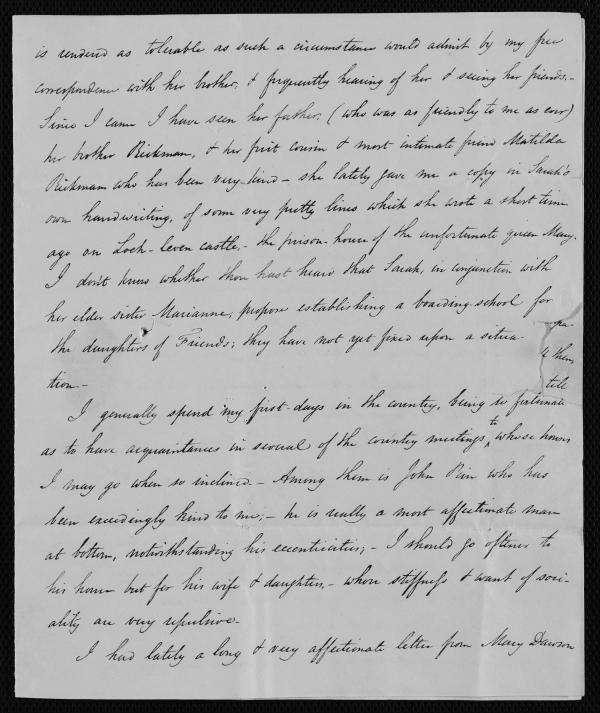 is rendered as tolerable as such a circumstance would admit by my free
correspondence with her brother, & frequently hearing of her & seeing her friends.-
Since I came I have seen her father, (who was as friendly to me as ever)
her brother Rickman, & her first cousin & most intimate friend Matilda
Rickman who has been very kind - she lately gave me a copy in Sarah's
own handwriting, of some very pretty lines which she wrote a short time
ago on Loch-leven castle,- the prison-house of the unfortunate queen Mary.
I don't know whether thou hast heard that Sarah, in conjunction with
her elder sister Marianne, propose establishing a boarding-school for
the daughters of Friends; they have not yet fixed upon a situa-
tion -
I generally spend my first-days in the country, being so fortunate
as to have acquaintances in several of the country meetings, to whose houses
I may go when so inclined - Among them is John Rin who has
been exceedingly kind to me;- he is really a most affectionate man
at bottom, notwithstanding his eccentricities;- I should go oftener to
his house but for his wife & daughters,- whose stiffness & want of soci-
ality are very repulsive.-
I had lately a long & very affectionate letter from Mary Dawson